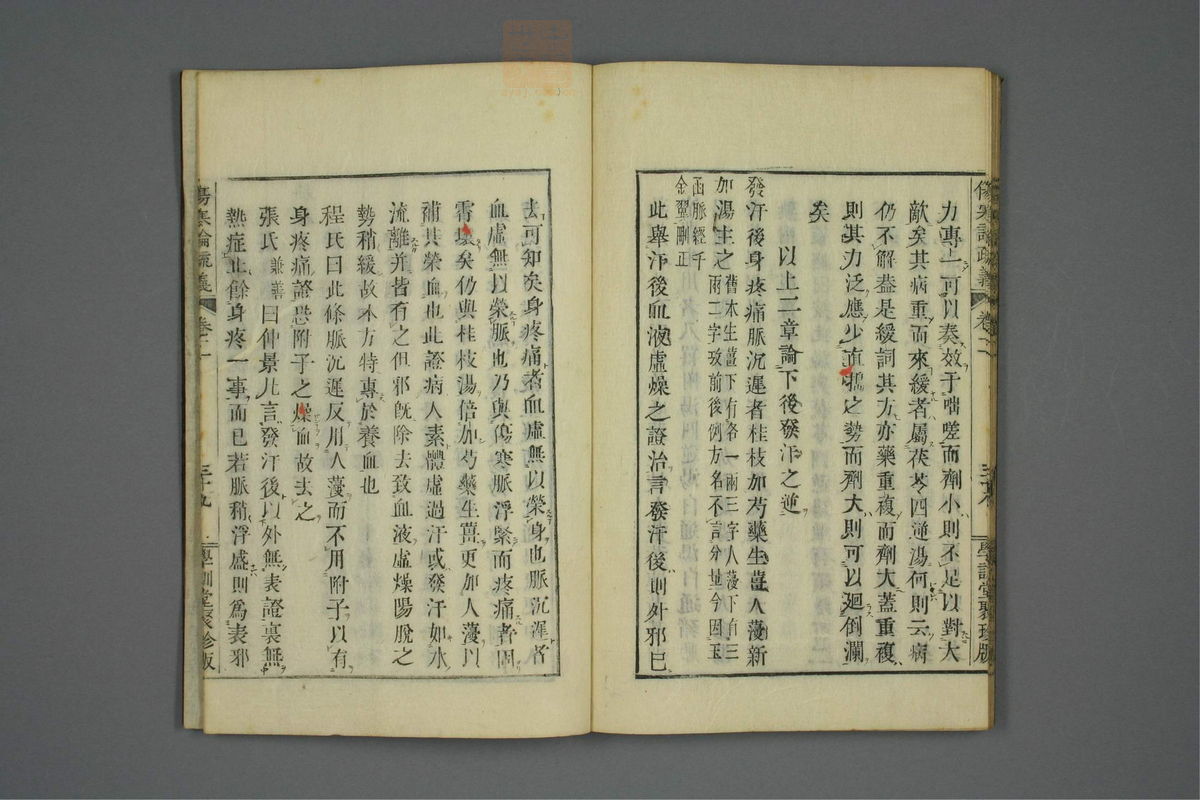 力專一可以奏效于喘嗟而劑小則不足以對大
敵矣其病重而來緩者屬茯苓四逆湯何則云病
仍不解盖是緩詞其方亦藥重複而劑大蓋重複
則其力泛應少直之勢而劑大則可以廻倒瀾
矣
以上二章論下後發汗之逆
發汗後身疼痛脈沉遲者桂枝加芍藥生薑人薓新
加湯主之舊本生薑下有各一兩三字人薓下有三
兩二字攷前後例方名不言分量今因玉
函脈經千
金翼刪正
此舉汗後血液虛燥之證治言發汗後則外邪已
傷寒論疏義
卷二
三十九
學訓堂聚珍版
去可知矣身疼痛者血虛無以榮身也脈沉遲者
血虛無以榮脈也乃與傷寒脈浮緊而疼痛者
霄壤矣仍與桂枝湯倍加芍藥生薑更加人薓以
補其榮血也此證病人素體虛過汗或發汗如水
流離并皆有之但邪既除去致血液虛燥陽脫之
勢稍緩故本方特專於養血也
程氏曰此條脈沉遲反用人薓而不用附子以有
身疼痛證恐附子之燥血故去之
張氏兼善曰仲景凡言發汗後以外無表證裏無
熱症止餘身疼一事而已若脈稍浮盛則爲表邪
傷寒論疏義
卷二
三十九
學訓堂聚珍版